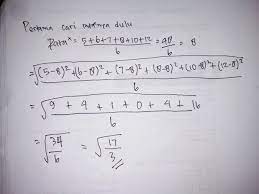 Pertama cari ratanya dulu
Rata² = 5+6+7+8+10+12 / 6 = 48 / 6 = 8
= √((5-8)² + (6-8)² + (7-8)² + (8-8)² + (10-8)² + (12-8)² / 6)
= √(9 + 4 + 1 + 0 + 4 + 16 / 6)
= √(34 / 6) = √(17 / 3)